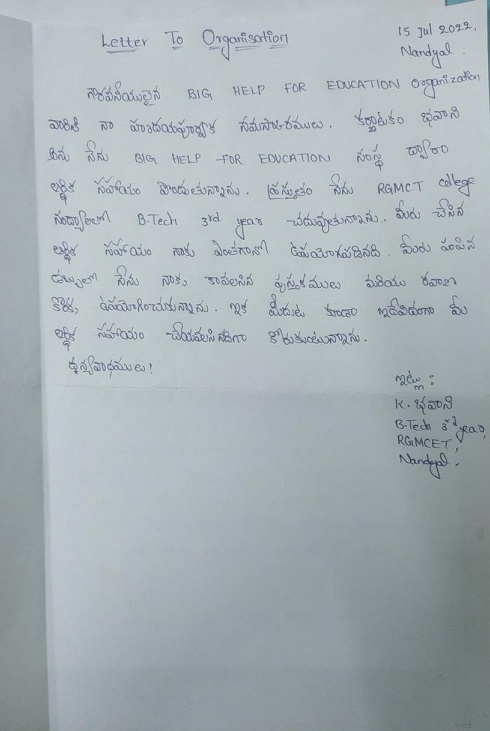 Letter To Organisation
15 Jul 2022,
Nandyal.
గౌరవనీయులైన BIG HELP FOR EDUCATION Organization
వారికి నా హృదయపూర్వక నమస్కారములు. కర్ణాటకం భవాని
అను నేను BIG HELP FOR EDUCATION సంస్థ ద్వారా
ఆర్థిక సహాయం పొందుతున్నాను. ప్రస్తుతం నేను RGMCT college
నంద్యాలలో B.Tech 3rd year చదువుతున్నాను. మీరు చేసిన
ఆర్థిక సహాయం నాకు ఎంతగానో ఉపయోగపడినది. మీరు పంపిన
డబ్బులో నేను నాకు కావలసిన పుస్తకములు మరియు రవాణా
కొరకు ఉపయోగించుకున్నాను. ఇక మీదుట కూడా ఇదేవిదంగా మీ
ఆర్థిక సహాయం చేయవలసినదిగా కోరుకుంటున్నాను.
ధన్యవాదములు!
ఇట్లు :
K. భవాని
B-Tech 3rd year,
RGMCET,
Nandyal.